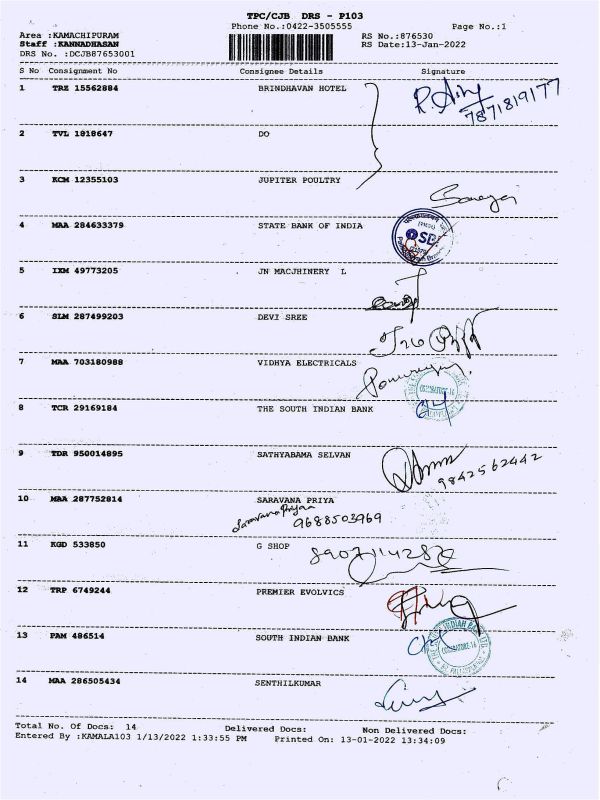 TPC/CJB DRS - P103
Phone No.:0422-3505555
Page No.:1
Area :KAMACHIPURAM
RS No.:876530
Staff :KANNADHASAN
RS Date:13-Jan-2022
DRS No. :DCJB87653001
S No Consignment No Consignee Details Signature
1 TRZ 15562884 BRINDHAVAN HOTEL
7871819177
2 TVL 1818647 DO
3 KCM 12355103 JUPITER POULTRY
4 MAA 284633379 STATE BANK OF INDIA
5 IXM 49773205 JN MACJHINERY L
6 SLM 287499203 DEVI SREE
7 MAA 703180988 VIDHYA ELECTRICALS
COIMBATORE-16
8 TCR 29169184 THE SOUTH INDIAN BANK
9 TDR 950014895 SATHYABAMA SELVAN
9842562442
10 MAA 287752814 SARAVANA PRIYA
Saravana Priyaa
9688503969
11 KGD 533850 G SHOP
12 TRP 6749244 PREMIER EVOLVICS
13 PAM 486514 SOUTH INDIAN BANK
COIMBATORE-16
14 MAA 286505434 SENTHILKUMAR
Total No. Of Docs: 14 Delivered Docs: Non Delivered Docs:
Entered By :KAMALA103 1/13/2022 1:33:55 PM Printed On: 13-01-2022 13:34:09